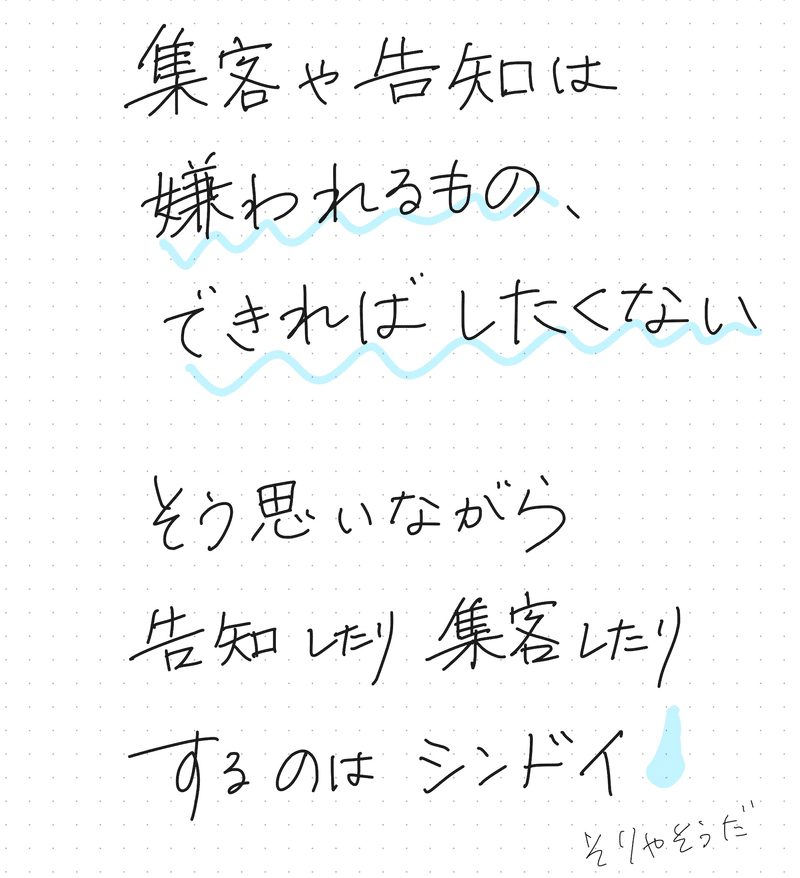 集客や告知は
嫌われるもの、
できればしたくない
そう思いながら
告知したり集客したり
するのはシンドイ
そりゃそうだ